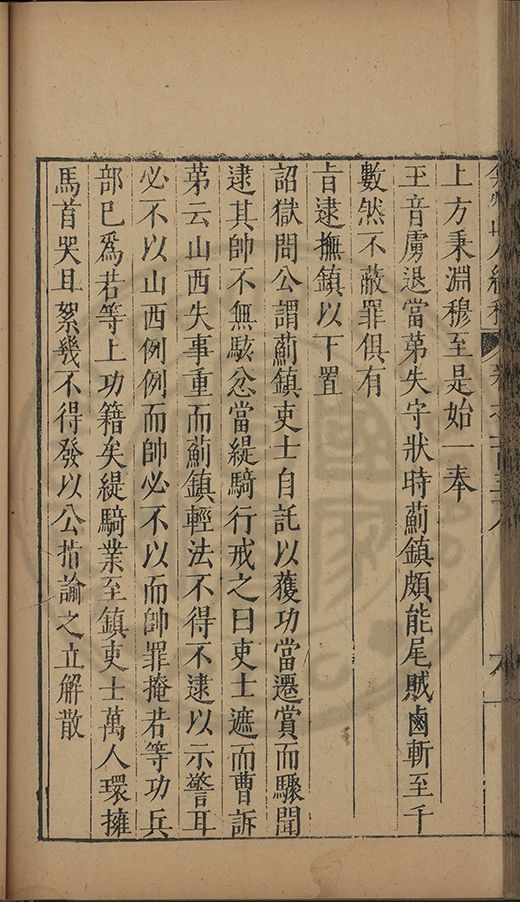 上方秉淵穆至是始一奉
王音虜退當苐失守狀時薊鎮頗能尾賊鹵斬至千
數然不蔽罪俱有
㫖逮撫鎮以下置
詔獄問公謂薊鎮吏士自託以獲功當遷賞而驟聞
逮其帥不無駭忿當緹騎行戒之曰吏士遮而曹訴
苐云山西失事重而薊鎮輕法不得不逮以示警耳
必不以山西例例而帥必不以而帥罪掩若等功兵
部巳爲若等上功籍矣緹騎業至鎮吏士萬人環擁
馬首哭且絮幾不得發以公指諭之立解散